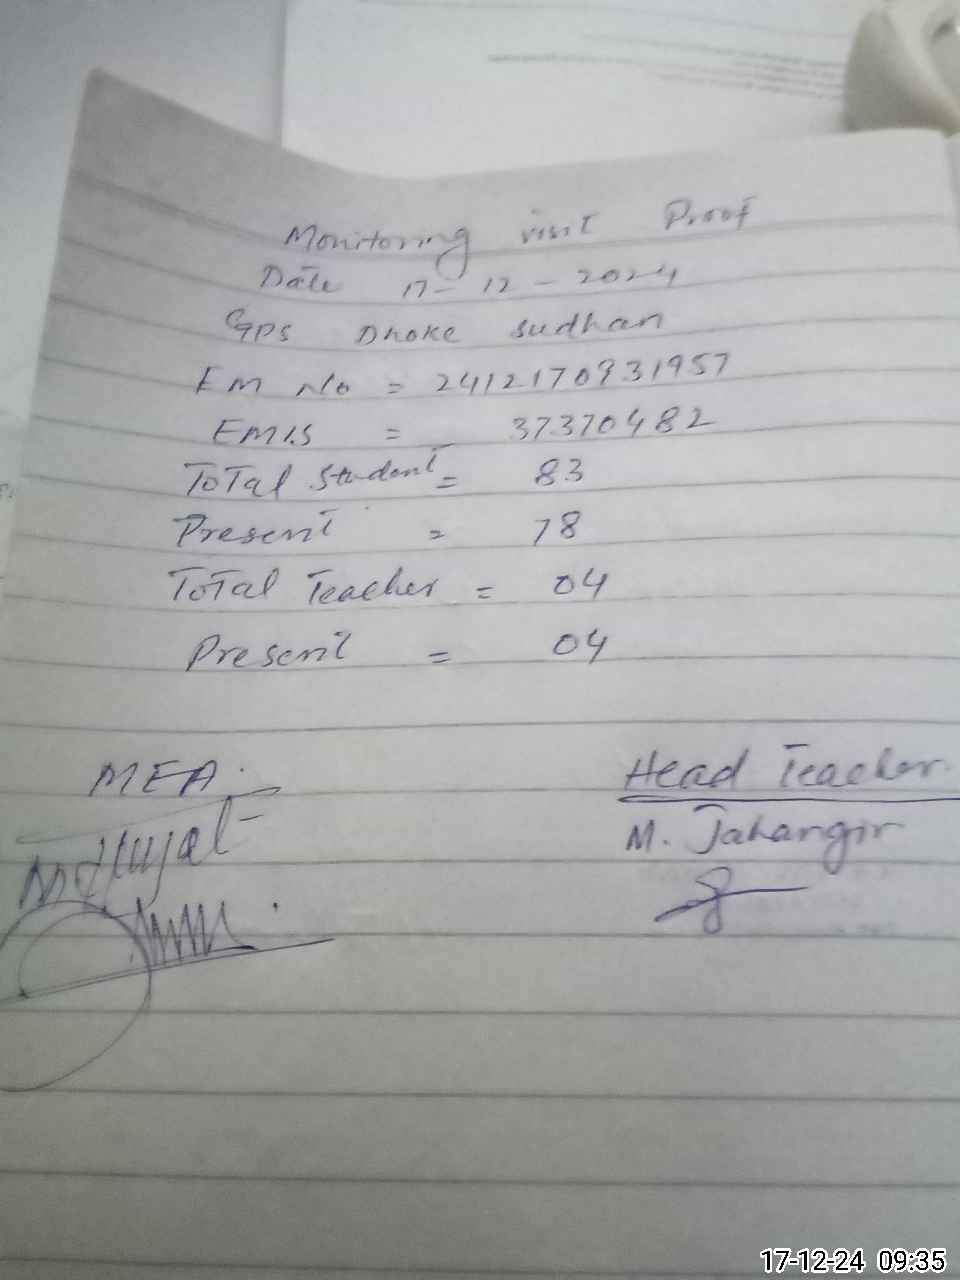 Monitoring visit Proof
Date 17-12-2024
GPS Dhoke Sudhan
EM No = 2412170931957
EMIS = 37370482
ToTal Student = 83
Present = 78
ToTal Teacher = 04
Present = 04
MEA.
Head Teacher
M. Jahangir
17-12-24 09:35